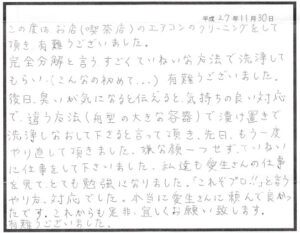 平成27年11月30日
この度は、お店(喫茶店)のエアコンのクリーニングをして
頂き、有難うございました。
完全分解と言うすごくていねいな方法で洗浄して
もらい(こんなの初めて...)有難うございました。
後日、臭いが気になると伝えると、気持ちの良い対応
で、違う方法(舟型の大きな容器)で漬け置きで
洗浄しなおして下さると言って頂き、先日、もう一度
やり直して頂きました。嫌な顔一つせず、ていねい
に仕事をして下さいました。私達も愛生さんの仕事
を見て、とても勉強になりました。「これぞプロ!!」と言う
やり方、対応でした。本当に愛生さんに頼んで良かっ
たです。これからも是非、宜しくお願い致します。
有難うございました。